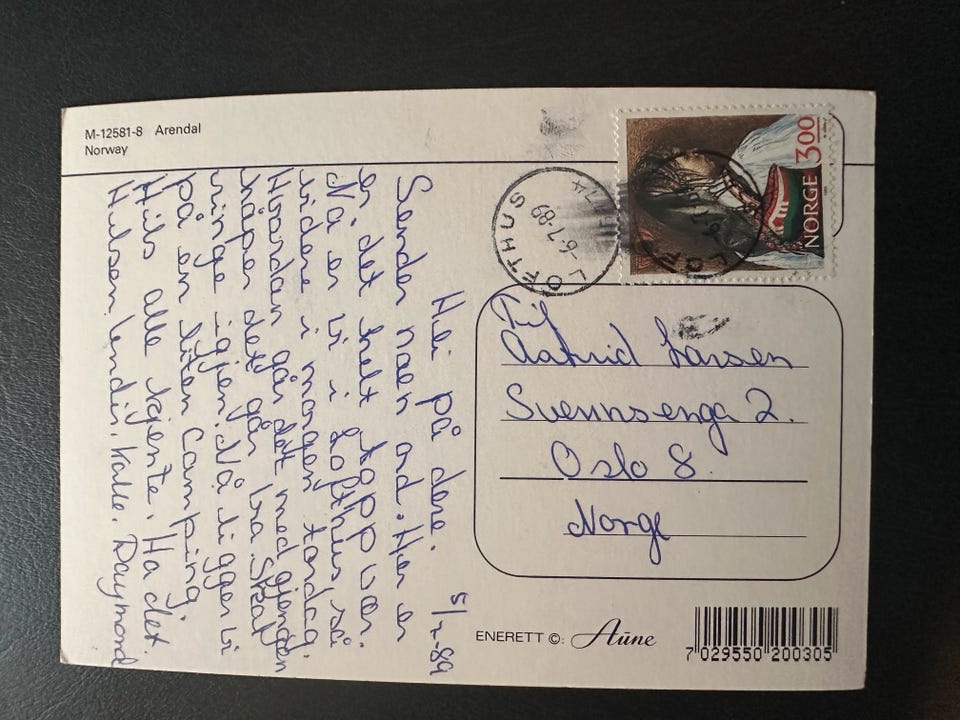 M-12581-8 Arendal
Norway
5/7-89
Hei på dere.
Sender noen ord. Her er
er det helt topp vær.
Nå er vi i Lofthus så
videre i morgen torsdag.
Hvordan går det med gjengen
håper det går bra. Skal
ringe igjen. Nå ligger vi
på en liten Camping.
Hils alle kjente. Ha det.
Hilsen Kalle.
NORGE 3.00
LOFTHUS
6-7-89
Til
Astrid Larsen
Svennsenga 2.
Oslo 8.
Norge
ENERETT ©: Aune
7 029550 200305